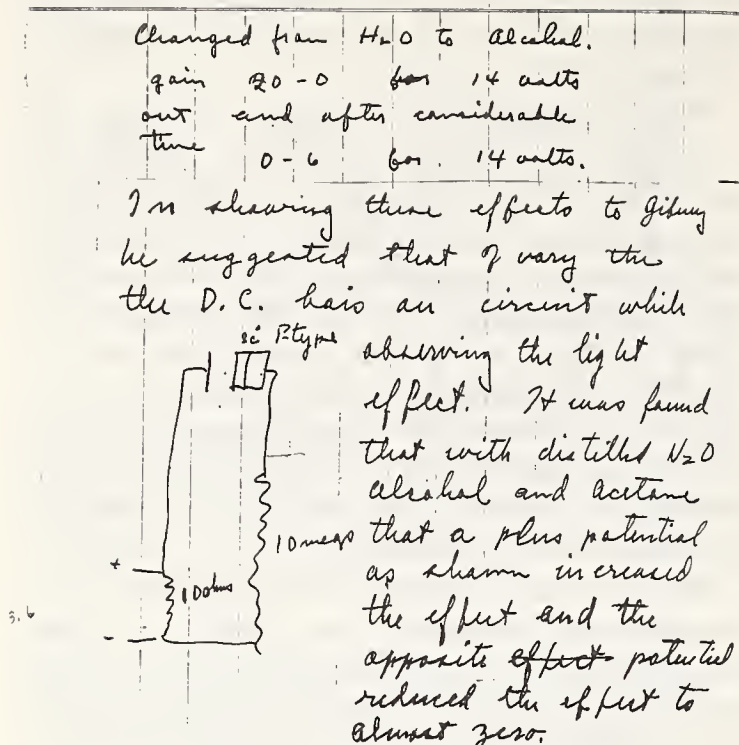 Changed from H2O to alcohol.
gain 20-0 for 14 volts
out and after considerable
time 0-6 for 14 volts.
In showing these effects to Gibney
he suggested that I vary the
the D.C. bais on circuit while
Si P-type observing the light
effect. It was found
that with distilled H2O
alcohol and acetone
10 megs that a plus potential
+ as shown increased
10 ohms the effect and the
3.6
- opposite effect potential
reduced the effect to
almost zero.